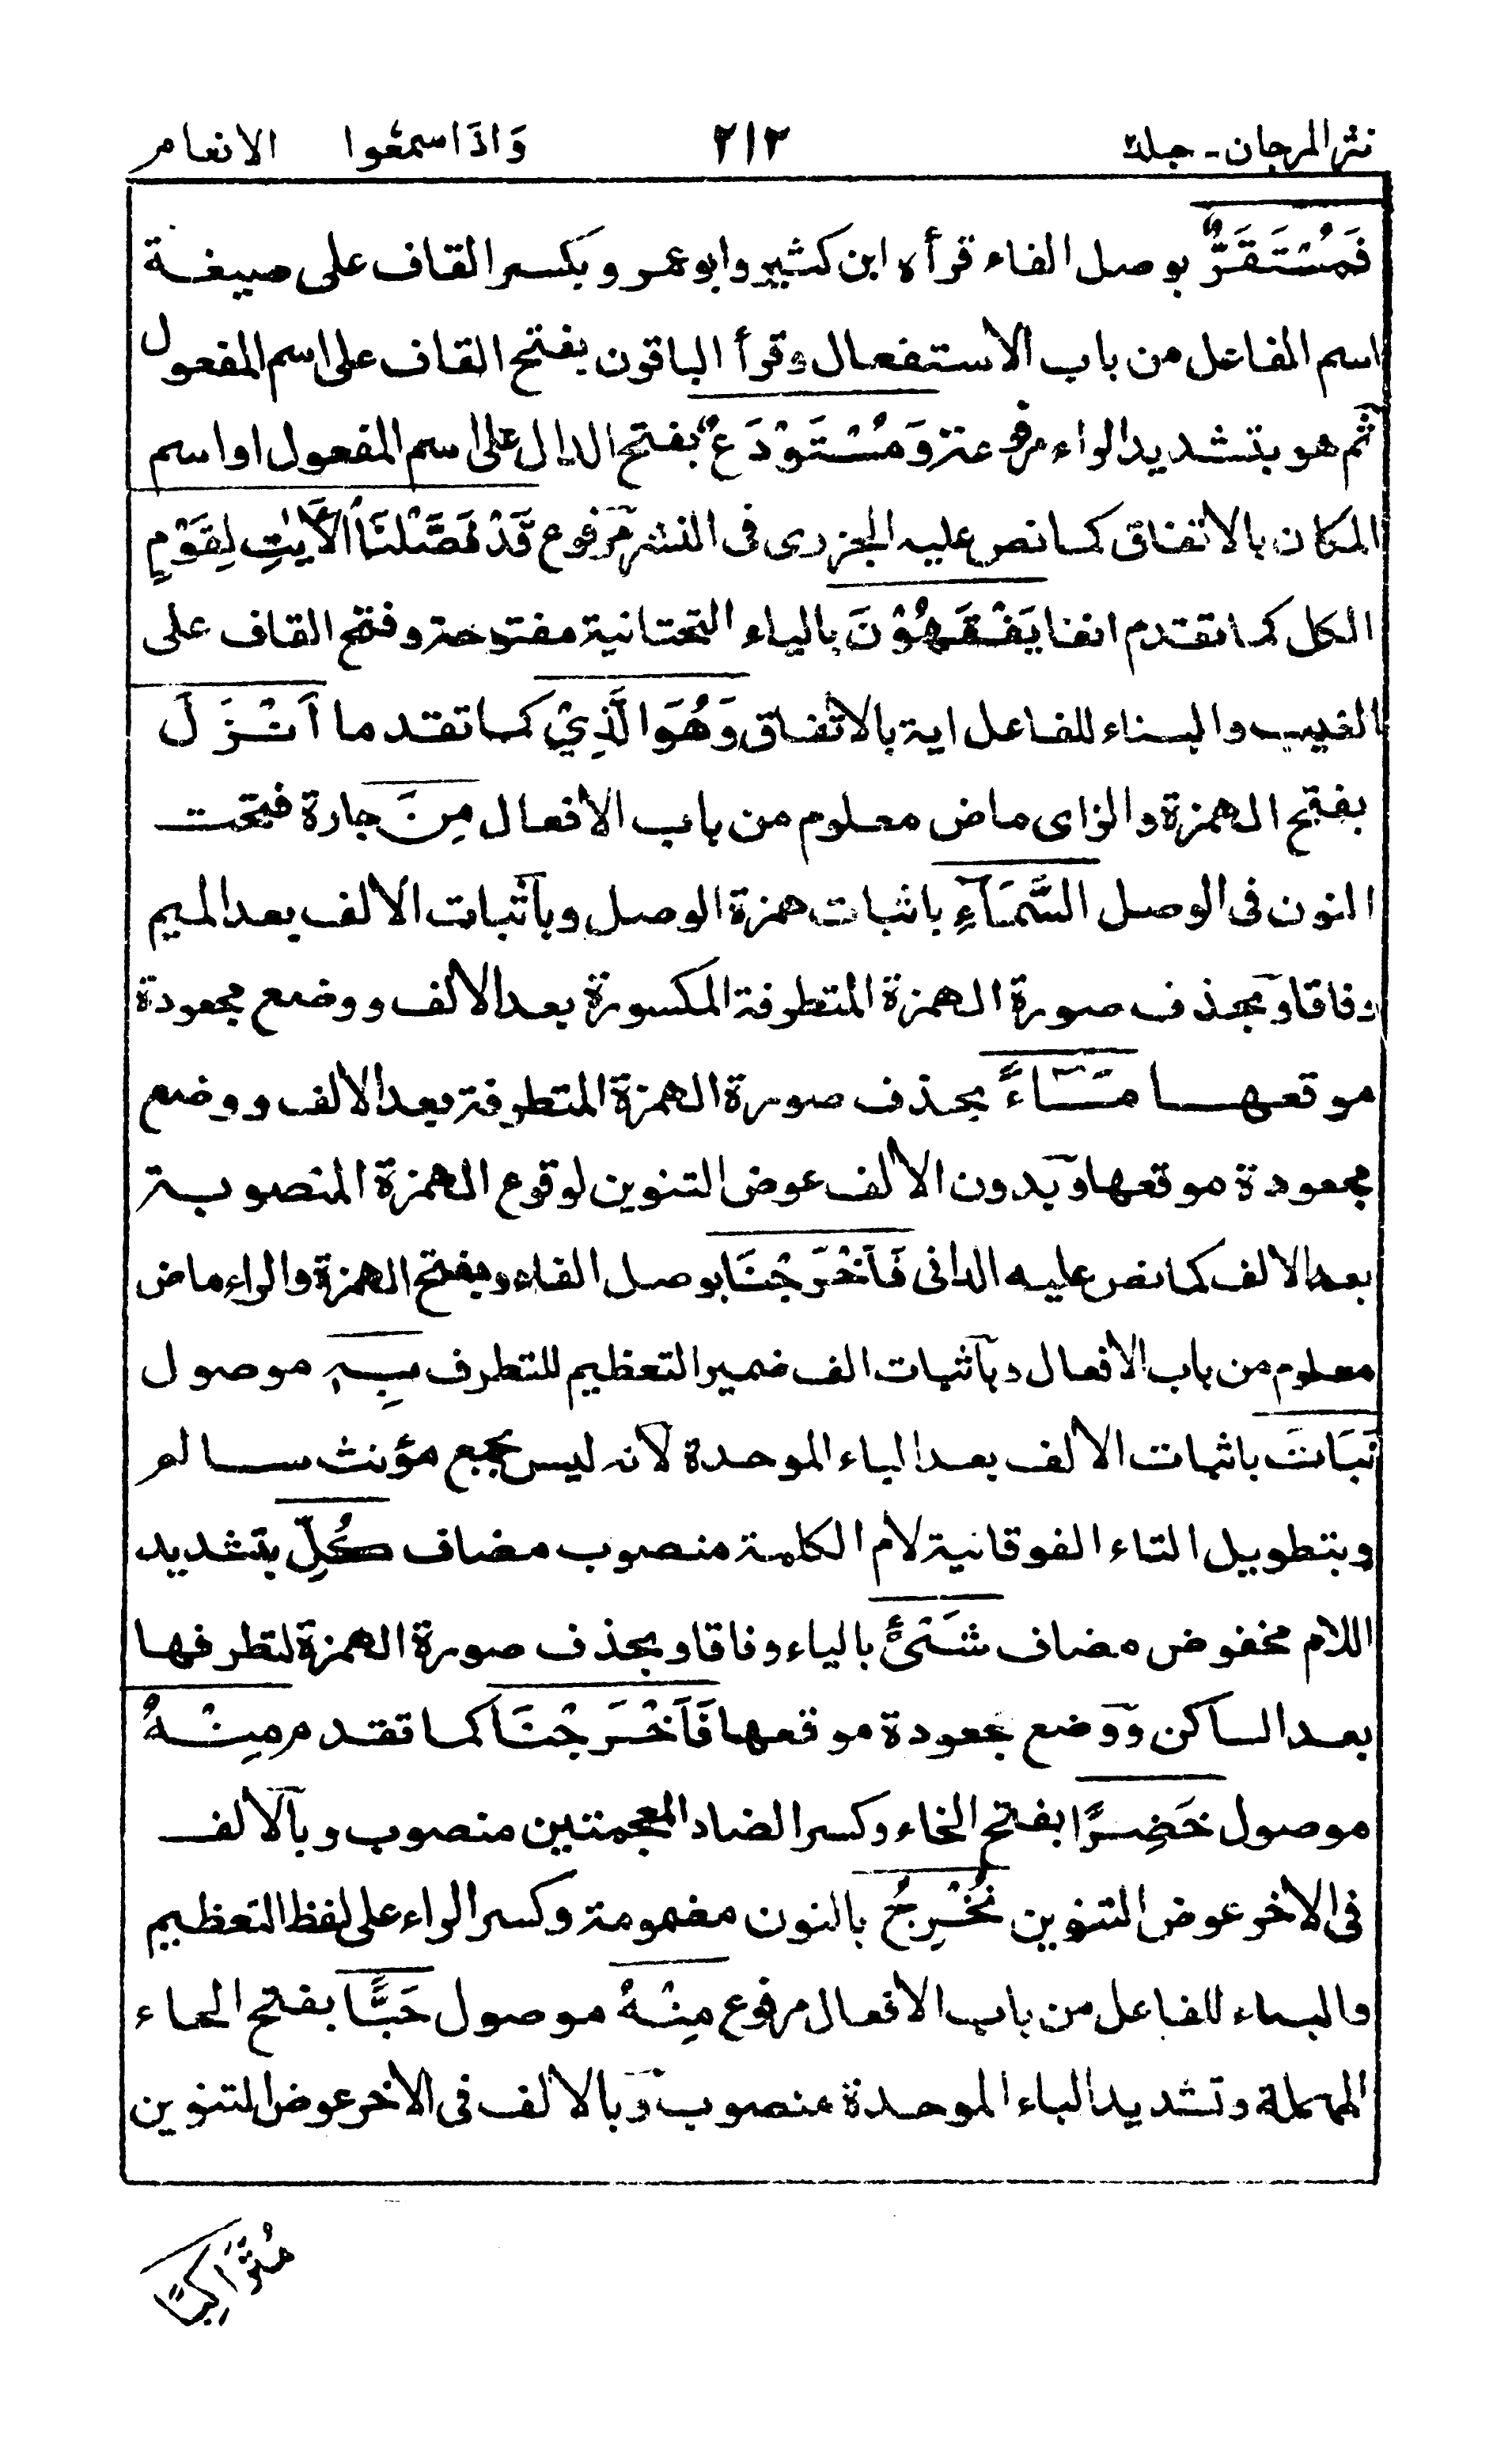 نثر المرجان - جلد ٢١٢ وَاذَا سمعُوا الانعام
فَمُسْتَقَرٌّ بوصل الفاء قرأه ابن كثير وابو عمرو بكسر القاف على صيغة
اسم الفاعل من باب الاستفعال وقرأ الباقون بفتح القاف على اسم المفعول
ثم هو بتشديد الراء مرفوعة وَمُسْتَوْدَعٌ بفتح الدال على اسم المفعول او اسم
المكان بالاتفاق كما نص عليه الجزرى فى النشر مرفوع قَدْ فَصَّلْنَا الْاٰيٰتِ لِقَوْمٍ
الكل كما تقدم انفا يَفْقَهُوْنَ بالياء التحتانية مفتوحة وفتح القاف على
الغيب والبناء للفاعل اية بالاتفاق وَهُوَ الَّذِيْ كما تقدم ما اَنْزَلَ
بفتح الهمزة والزاى ماض معلوم من باب الافعال مِنَ جارة فتحت
النون فى الوصل السَّمَآءِ باثبات همزة الوصل وبآثبات الالف بعد الميم
وفاقا وبحذف صورة الهمزة المتطرفة المكسورة بعد الالف ووضع مجعودة
موقعها مَآءً بحذف صورة الهمزة المتطرفة بعد الالف ووضع
مجعودة موقعها وبدون الالف عوض التنوين لوقوع الهمزة المنصوبة
بعد الالف كما نص عليه الدانى فَاَخْرَجْنَا بوصل الفاء وبفتح الهمزة والراء ماض
معلوم من باب الافعال وبآثبات الف ضمير التعظيم للتطرف بِهٖ موصول
نَبَاتَ باثبات الالف بعد الباء الموحدة لانه ليس بجمع مؤنث سالم
وبتطويل التاء الفوقانية لام الكلمة منصوب مضاف كُلِّ بتشديد
اللام مخفوض مضاف شَىْءٍ بالياء وفاقا وبحذف صورة الهمزة لتطرفها
بعد الساكن ووضع جعودة موقعها فَاَخْرَجْنَا كما تقدم مِنْهُ
موصول خَضِرًا بفتح الخاء وكسر الضاد المعجمتين منصوب وبآلالف
فى الاخر عوض التنوين نُخْرِجُ بالنون مضمومة وكسر الراء على لفظ التعظيم
والبناء للفاعل من باب الافعال مرفوع مِنْهُ موصول حَبًّا بفتح الحاء
المهملة وتشديد الباء الموحدة منصوب وبالالف فى الاخر عوض التنوين
مُتَرَاكِبًا